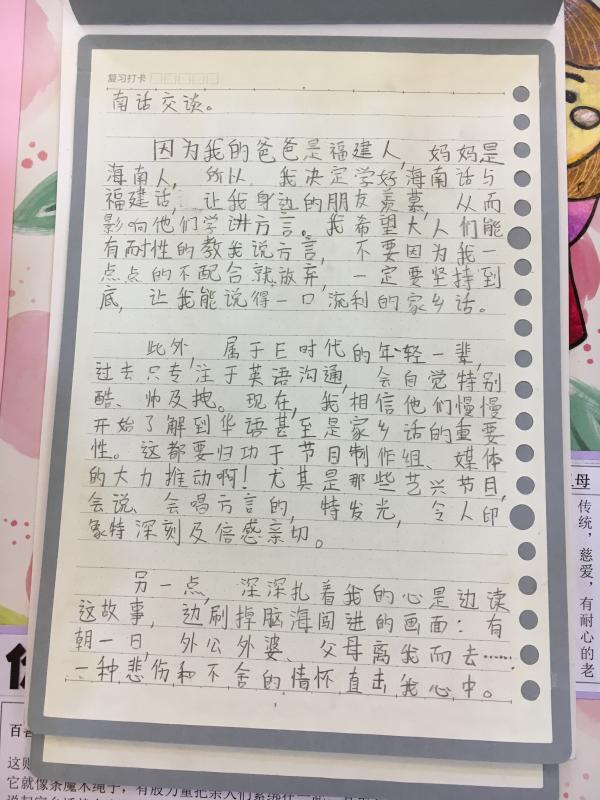 复习打卡
南话交谈。
因为我的爸爸是福建人，妈妈是
海南人，所以我决定学好海南话与
福建话，让我身边的朋友羡慕，从而
影响他们学讲方言。我希望大人们能
有耐性的教我说方言，不要因为我一
点点的不配合就放弃，一定要坚持到
底，让我能说得一口流利的家乡话。
此外，属于E时代的年轻一辈，
过去只专注于英语沟通，会自觉特别
酷、帅及拽。现在，我相信他们慢慢
开始了解到华语甚至是家乡话的重要
性。这都要归功于节目制作组、媒体
的大力推动啊！尤其是那些艺兴节目，
会说、会唱方言的，特发光，令人印
象特深刻及倍感亲切。
另一点，深深扎着我的心是边读
这故事，边刷掉脑海闯进的画面：有
朝一日，外公外婆、父母离我而去……
一种悲伤和不舍的情怀直击我心中。
母
传统，
慈爱，
有耐心的老
百
这则
它就像条魔术绳子，有股力量把亲人们紧绑在一